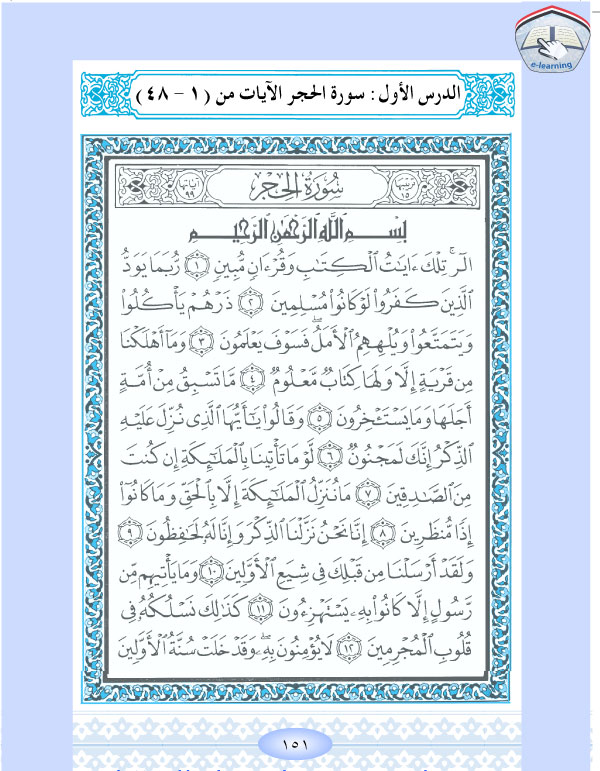 e-learning
الدرس الأول : سورة الحجر الآيات من ( ١ - ٤٨ )
ترتيبها ١٥ سُورَةُ الحِجْرِ آياتها ٩٩
بِسْمِ اللَّهِ الرَّحْمَٰنِ الرَّحِيمِ
الٓرۚ تِلْكَ ءَايَٰتُ ٱلْكِتَٰبِ وَقُرْءَانٍ مُّبِينٍ ١ رُّبَمَا يَوَدُّ
ٱلَّذِينَ كَفَرُوا۟ لَوْ كَانُوا۟ مُسْلِمِينَ ٢ ذَرْهُمْ يَأْكُلُوا۟
وَيَتَمَتَّعُوا۟ وَيُلْهِهِمُ ٱلْأَمَلُۖ فَسَوْفَ يَعْلَمُونَ ٣ وَمَآ أَهْلَكْنَا
مِن قَرْيَةٍ إِلَّا وَلَهَا كِتَابٌ مَّعْلُومٌ ٤ مَّا تَسْبِقُ مِنْ أُمَّةٍ
أَجَلَهَا وَمَا يَسْتَـْٔخِرُونَ ٥ وَقَالُوا۟ يَٰٓأَيُّهَا ٱلَّذِى نُزِّلَ عَلَيْهِ
ٱلذِّكْرُ إِنَّكَ لَمَجْنُونٌ ٦ لَّوْ مَا تَأْتِينَا بِٱلْمَلَٰٓئِكَةِ إِن كُنتَ
مِنَ ٱلصَّٰدِقِينَ ٧ مَا نُنَزِّلُ ٱلْمَلَٰٓئِكَةَ إِلَّا بِٱلْحَقِّ وَمَا كَانُوٓا۟
إِذًا مُّنظَرِينَ ٨ إِنَّا نَحْنُ نَزَّلْنَا ٱلذِّكْرَ وَإِنَّا لَهُۥ لَحَٰفِظُونَ ٩
وَلَقَدْ أَرْسَلْنَا مِن قَبْلِكَ فِى شِيَعِ ٱلْأَوَّلِينَ ١٠ وَمَا يَأْتِيهِم مِّن
رَّسُولٍ إِلَّا كَانُوا۟ بِهِۦ يَسْتَهْزِءُونَ ١١ كَذَٰلِكَ نَسْلُكُهُۥ فِى
قُلُوبِ ٱلْمُجْرِمِينَ ١٢ لَا يُؤْمِنُونَ بِهِۦۖ وَقَدْ خَلَتْ سُنَّةُ ٱلْأَوَّلِينَ
١٥١